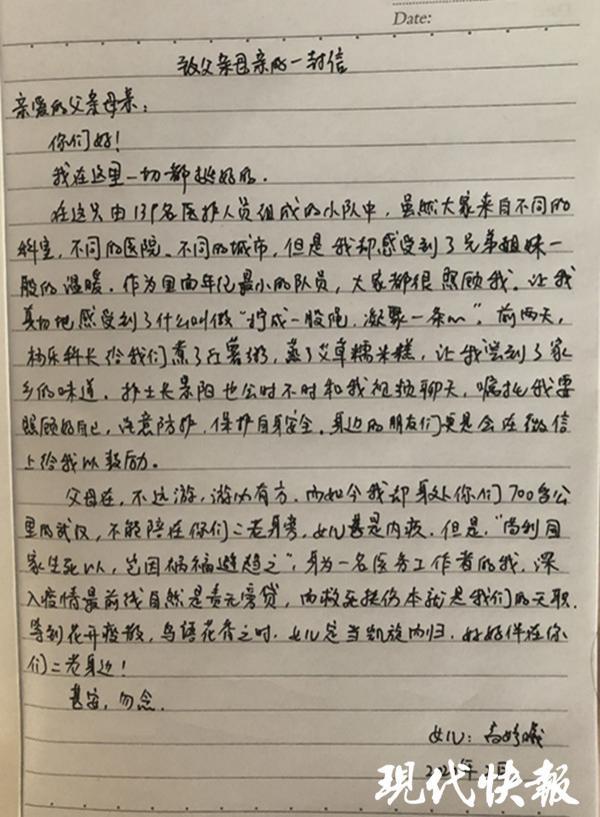 Date:
致父亲母亲的一封信
亲爱的父亲母亲：
你们好！
我在这里一切都挺好的。
在这只由139名医护人员组成的小队中，虽然大家来自不同的
科室，不同的医院、不同的城市，但是我却感受到了兄弟姐妹一
般的温暖。作为里面年纪最小的队员，大家都很照顾我。让我
真切地感受到了什么叫做“拧成一股绳，凝聚一条心”。前两天，
杨乐科长给我们煮了红薯粥，蒸了艾草糯米糕，让我尝到了家
乡的味道。护士长景阳也会时不时和我视频聊天，嘱托我要
照顾好自己，注意防护，保护自身安全。身边的朋友们更是会在微信
上给我以鼓励。
父母在，不远游，游必有方。而如今我却身处你们700多公
里的武汉，不能陪在你们二老身旁，女儿甚是内疚。但是，“苟利国
家生死以，岂因祸福避趋之”，身为一名医务工作者的我，深
入疫情最前线自然是责无旁贷，而救死扶伤本就是我们的天职。
等到花开疫散，鸟语花香之时，女儿定当凯旋而归，好好伴在你
们二老身边！
甚安，勿念。
女儿：高
现代快報